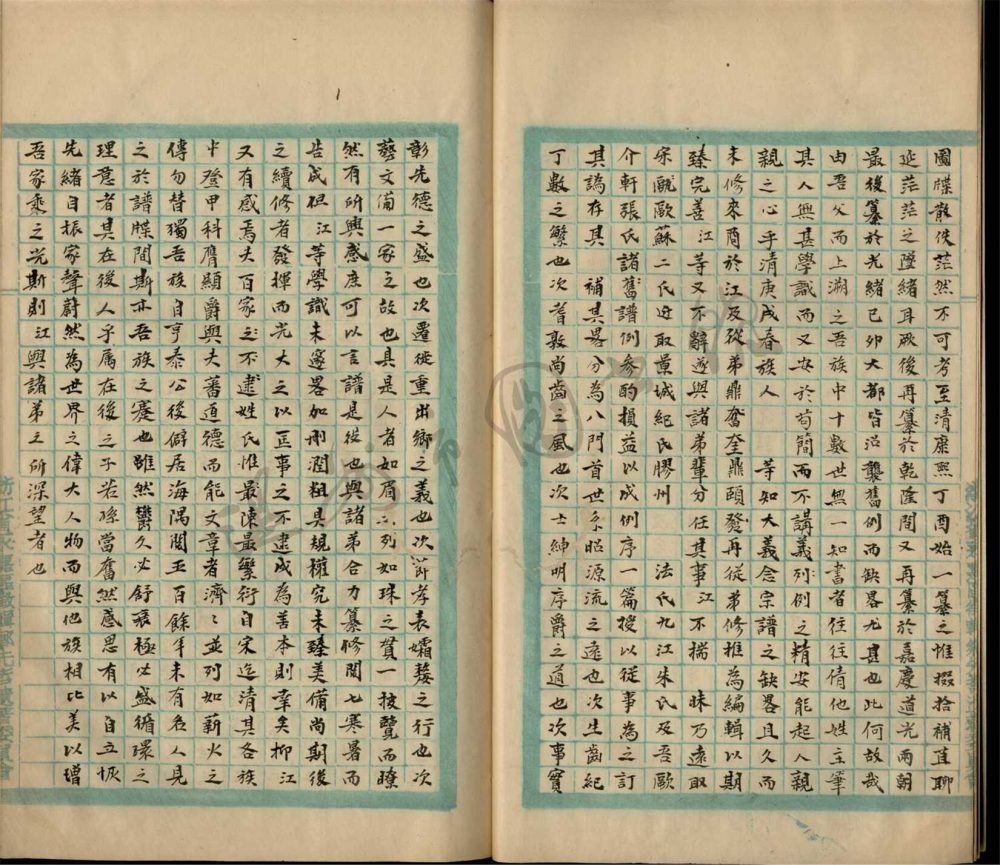 圖牒散佚茫然不可考至清康熙丁酉始一纂之惟掇拾補苴聊
延茫茫之墜緒耳厥後再纂於乾隆間又再纂於嘉慶道光兩朝
最後纂於光緒己卯大都皆沿襲舊例而缺畧尤甚也此何故哉
由吾父而上溯之吾族中十數世無一知書者往往倩他姓主筆
其人無甚學識而又安於苟簡而不講義列例之精安能起人親
親之心乎清庚戌春族人 等知大義念宗譜之缺畧且久而
未修來商於江及從弟鼎奮奎鼎頤發再從弟修推為編輯以期
臻完善江等又不辭遂與諸弟輩分任其事江不揣 昧乃遠取
宋廬歐蘇二氏近取藁城紀氏膠州 法氏九江朱氏及吾歐
介軒張氏諸舊譜例參酌損益以成例序一篇授以從事為之訂
其譌存其 補其畧分為八門首世系昭源流之遠也次生齒紀
丁數之繁也次耆耇敦尚齒之風也次士紳明序爵之道也次事實
彰先德之盛也次遷徙重出鄉之義也次 孝表孀嫠之行也次
藝文備一家之故也具是人者如眉之列如珠之貫一披覽而瞭
然有所興感庶可以言譜是役也與諸弟合力纂修閱七寒暑而
告成但江等學識未邃畧加刪潤粗具規模究未臻美備尚期後
之續修者發揮而光大之以匡事之不逮成為善本則幸矣抑江
又有感焉夫百家之不逮姓氏惟最陳最繁衍自宋迄清其各族
中登甲科膺顯爵與夫蓄道德而能文章者濟濟並列如薪火之
傳勿替獨吾族自亨泰公後僻居海隅閱五百餘年未有名人見
之於譜牒間斯亦吾族之蹇也雖然鬱久必舒衰極必盛循環之
理意者其在後人乎厲在後之子若孫當奮然感思有以自立恢
先緒自振家聲蔚然為世界之偉大人物而與他族相比美以增
吾家乘之光斯則江與諸弟之所深望者也